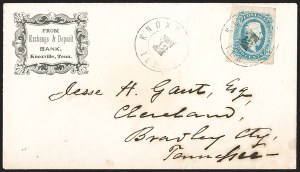 FROM
Exchange & Deposit
BANK,
Knoxville, Tenn.
KNOX
Jesse H. Gaut, Esq
Cleveland,
Bradley Cty,
Tennessee